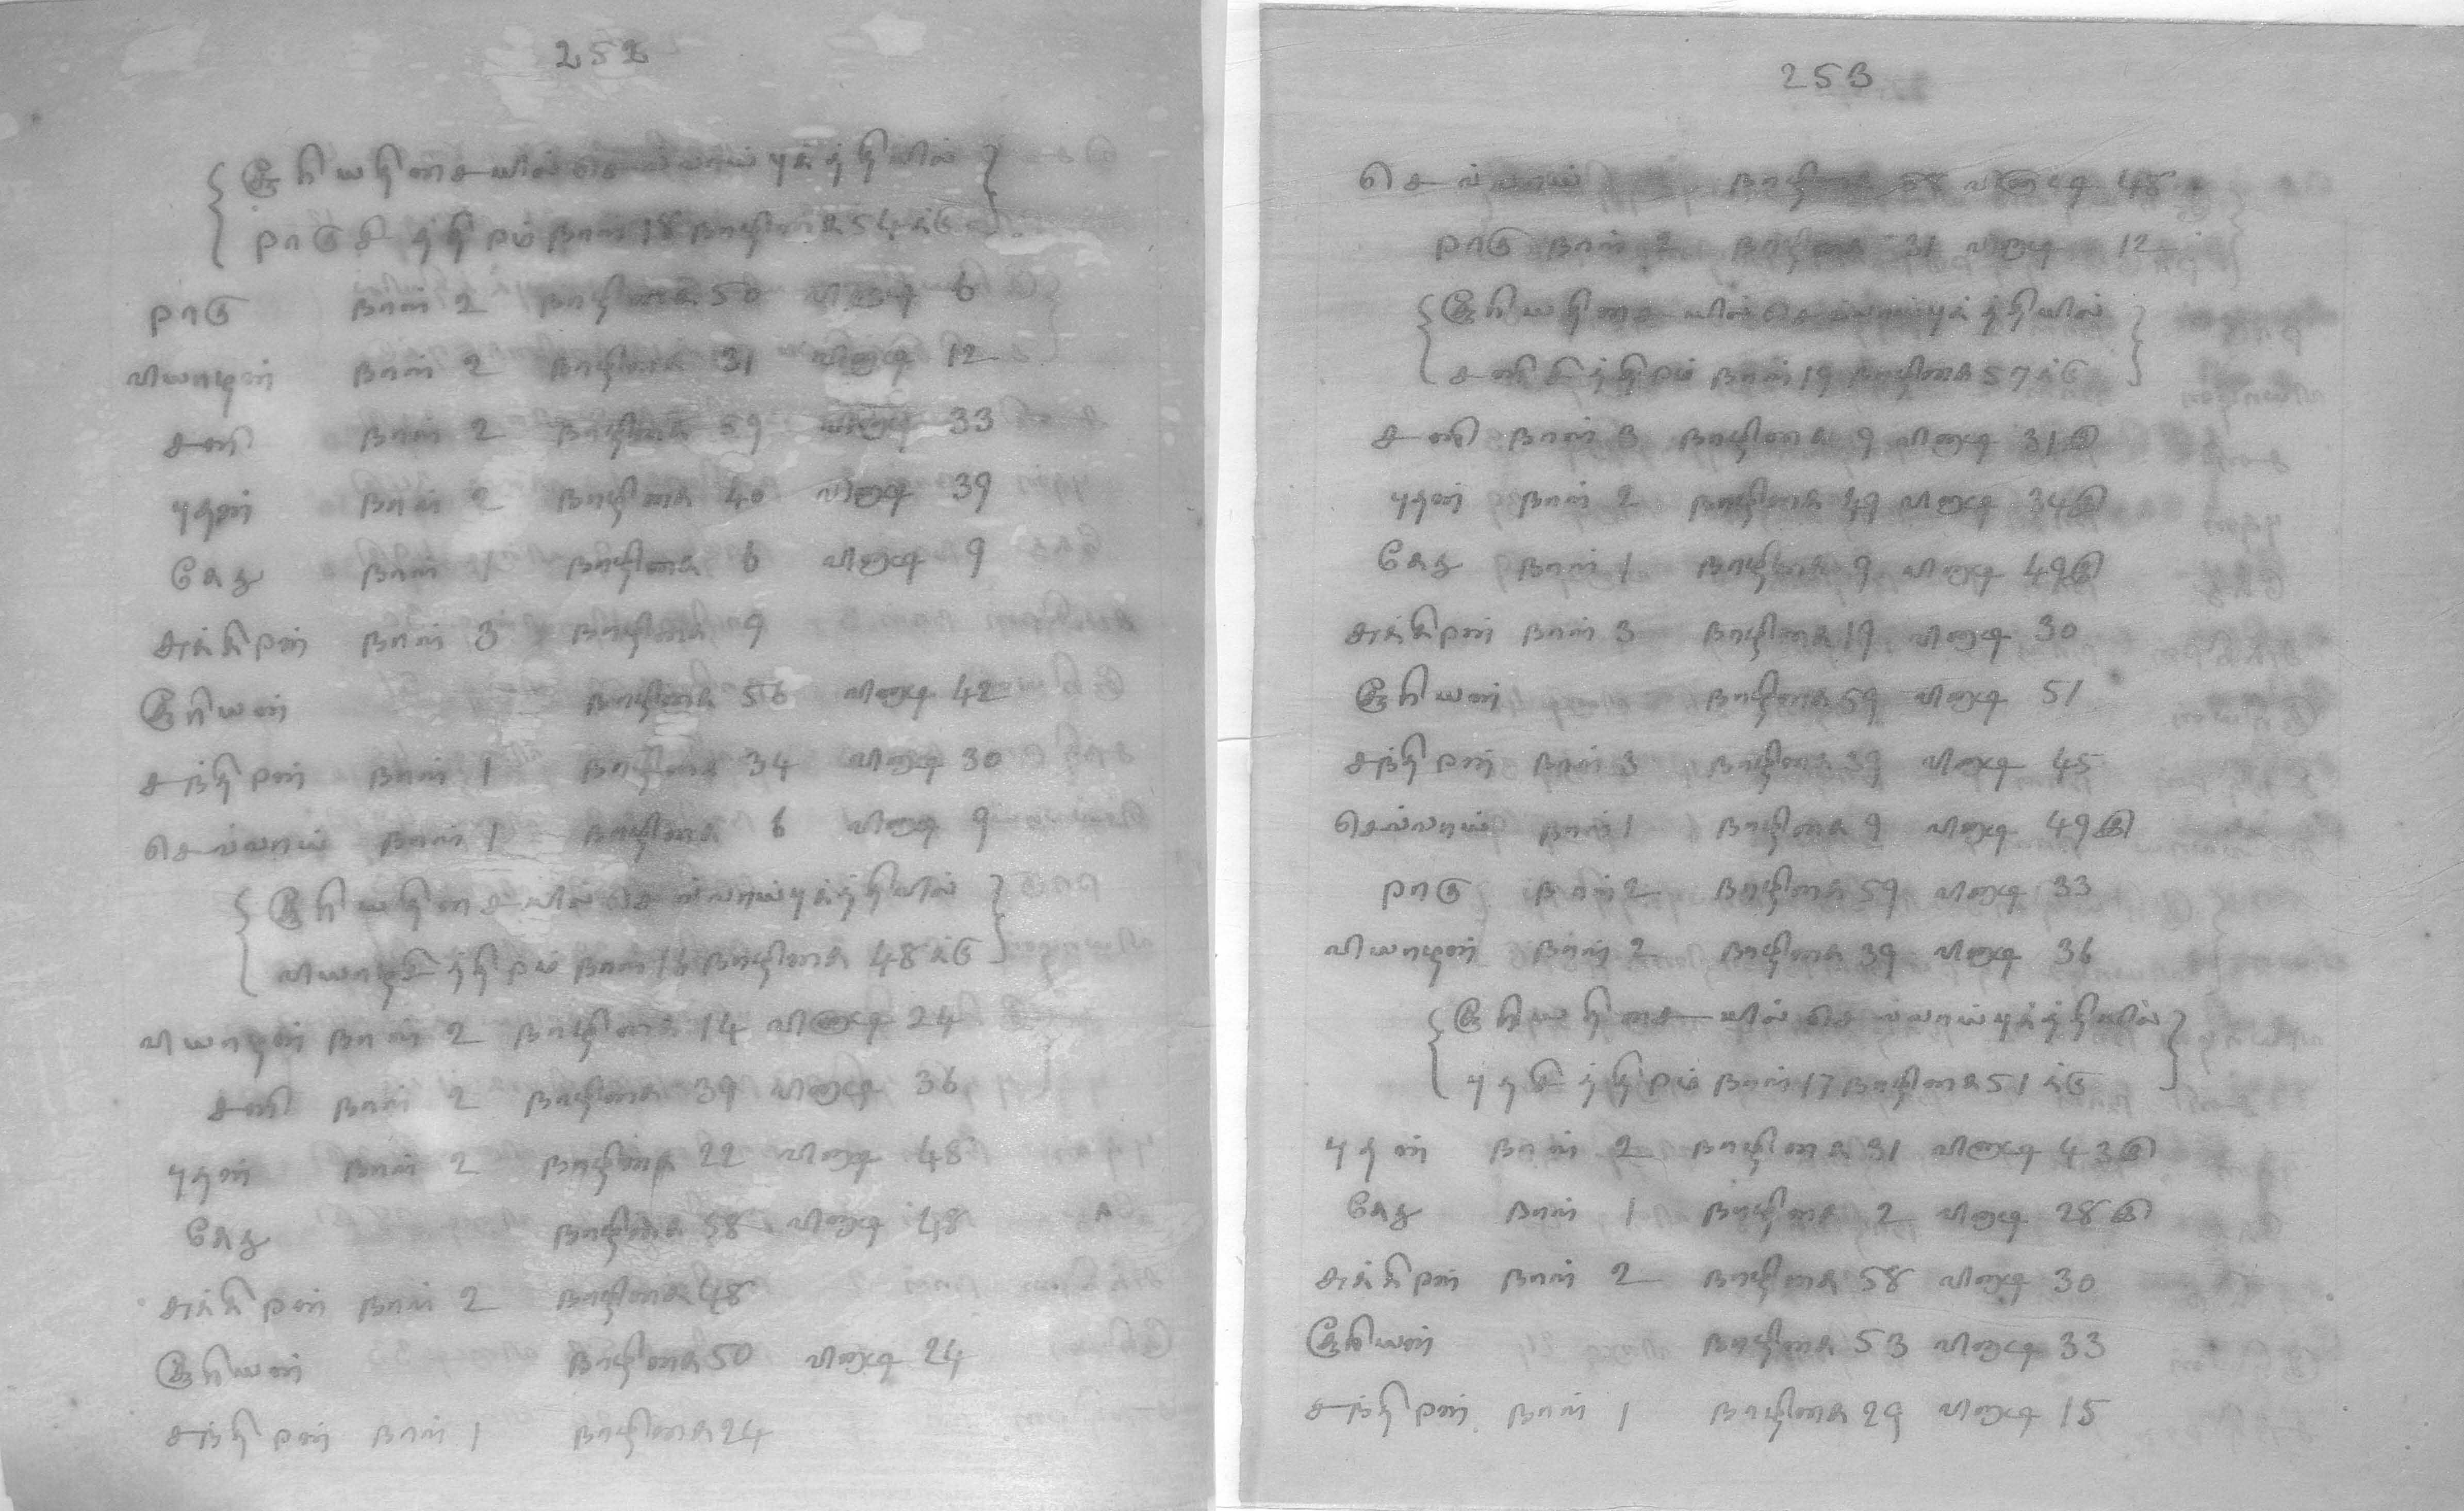 252
{ சூரியதிசையில்செவ்வாய்புத்தியில் }
{ ராகுசித்திரம் நாள் 18 நாழிகை 54க்கு }
ராகு நாள் 2 நாழிகை 50 வினாடி 6
வியாழன் நாள் 2 நாழிகை 31 வினாடி 12
சனி நாள் 2 நாழிகை 59 வினாடி 33
புதன் நாள் 2 நாழிகை 40 வினாடி 39
கேது நாள் 1 நாழிகை 6 வினாடி 9
சுக்கிரன் நாள் 3 நாழிகை 9
சூரியன் நாழிகை 56 வினாடி 42
சந்திரன் நாள் 1 நாழிகை 34 வினாடி 30
செவ்வாய் நாள் 1 நாழிகை 6 வினாடி 9
{ சூரியதிசையில்செவ்வாய்புத்தியில் }
{ வியாழசித்திரம் நாள் 16 நாழிகை 48க்கு }
வியாழன் நாள் 2 நாழிகை 14 வினாடி 24
சனி நாள் 2 நாழிகை 39 வினாடி 36
புதன் நாள் 2 நாழிகை 22 வினாடி 48
கேது நாழிகை 58 வினாடி 48
சுக்கிரன் நாள் 2 நாழிகை 48
சூரியன் நாழிகை 50 வினாடி 24
சந்திரன் நாள் 1 நாழிகை 24
253
செவ்வாய் நாழிகை 58 வினாடி 48
ராகு நாள் 2 நாழிகை 31 வினாடி 12
{ சூரியதிசையில்செவ்வாய்புத்தியில் }
{ சனிசித்திரம் நாள் 19 நாழிகை 57க்கு }
சனி நாள் 3 நாழிகை 9 வினாடி 31இ
புதன் நாள் 2 நாழிகை 49 வினாடி 34இ
கேது நாள் 1 நாழிகை 9 வினாடி 49இ
சுக்கிரன் நாள் 3 நாழிகை 19 வினாடி 30
சூரியன் நாழிகை 59 வினாடி 51
சந்திரன் நாள் 3 நாழிகை 39 வினாடி 45
செவ்வாய் நாள் 1 நாழிகை 9 வினாடி 49இ
ராகு நாள் 2 நாழிகை 59 வினாடி 33
வியாழன் நாள் 2 நாழிகை 39 வினாடி 36
{ சூரியதிசையில்செவ்வாய்புத்தியில் }
{ புதசித்திரம் நாள் 17 நாழிகை 51க்கு }
புதன் நாள் 2 நாழிகை 31 வினாடி 43இ
கேது நாள் 1 நாழிகை 2 வினாடி 28இ
சுக்கிரன் நாள் 2 நாழிகை 58 வினாடி 30
சூரியன் நாழிகை 53 வினாடி 33
சந்திரன் நாள் 1 நாழிகை 29 வினாடி 15